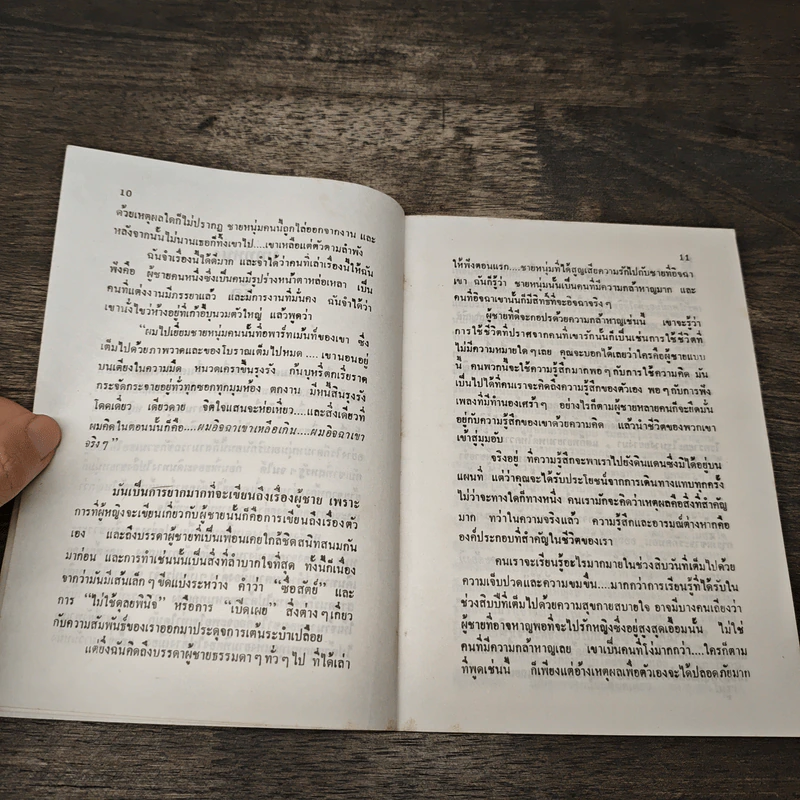 10
ด้วยเหตุผลใดก็ไม่ปรากฏ ชายหนุ่มคนนี้ถูกไล่ออกจากงาน และ
หลังจากนั้นไม่นานเธอก็ทิ้งเขาไป....เขาเหลือแต่ตัวตามลำพัง
ฉันจำเรื่องนี้ได้ดีมาก และจำได้ว่าคนที่เล่าเรื่องนี้ให้ฉัน
ฟังคือ ผู้ชายคนหนึ่งซึ่งเป็นคนมีรูปร่างหน้าตาหล่อเหลา เป็น
คนที่แต่งงานมีภรรยาแล้ว และมีการงานที่มั่นคง ฉันจำได้ว่า
เขานั่งไขว่ห้างอยู่ที่เก้าอี้บุนวมตัวใหญ่ แล้วพูดว่า
“ผมไปเยี่ยมชายหนุ่มคนนั้นที่อพาร์ทเม้นท์ของเขา ซึ่ง
เต็มไปด้วยภาพวาดและของโบราณเต็มไปหมด .... เขานอนอยู่
บนเตียงในความมืด หนวดเคราขึ้นรุงรัง ก้นบุหรี่ตกเรี่ยราด
กระจัดกระจายอยู่ทั่วทุกซอกทุกมุมห้อง ตกงาน มีหนี้สินรุงรัง
โดดเดี่ยว เดียวดาย จิตใจแสนจะห่อเหี่ยว....และสิ่งเดียวที่
ผมคิดในตอนนั้นก็คือ....ผมอิจฉาเขาเหลือเกิน....ผมอิจฉาเขา
จริงๆ”
มันเป็นการยากมากที่จะเขียนถึงเรื่องผู้ชาย เพราะ
การที่ผู้หญิงจะเขียนเกี่ยวกับผู้ชายนั้นก็คือการเขียนถึงเรื่องตัว
เอง และถึงบรรดาผู้ชายที่เป็นเพื่อนเคยใกล้ชิดสนิทสนมกัน
มาก่อน และการทำเช่นนั้นเป็นสิ่งที่ลำบากใจที่สุด ทั้งนี้ก็เนื่อง
จากว่ามันมีเส้นเล็กๆขีดแบ่งระหว่าง คำว่า “ซื่อสัตย์” และ
การ “ไม่ใช้ดุลยพินิจ” หรือการ “เปิดเผย” สิ่งต่างๆเกี่ยว
กับความสัมพันธ์ของเราออกมาประดุจการเต้นระบำเปลื้อย
แต่ยิ่งฉันคิดถึงบรรดาผู้ชายธรรมดาๆทั่วๆไป ที่ได้เล่า
11
ให้ฟังตอนแรก....ชายหนุ่มที่ได้สูญเสียความรักไปกับชายที่อิจฉา
เขา ฉันก็รู้ว่า ชายหนุ่มนั้นเป็นคนที่มีความกล้าหาญมาก และ
คนที่อิจฉาเขานั้นก็มีสิทธิที่จะอิจฉาจริงๆ
ผู้ชายที่ดีจะกอปรด้วยความกล้าหาญเช่นนี้ เขาจะรู้ว่า
การใช้ชีวิตที่ปราศจากคนที่เขารักนั้นก็เป็นเช่นการใช้ชีวิตที่
ไม่มีความหมายใดๆเลย คุณจะบอกได้เลยว่าใครคือผู้ชายแบบ
นี้ คนพวกนี้จะใช้ความรู้สึกมากพอๆกับการใช้ความคิด มัน
เป็นไปได้ที่คนเราจะคิดถึงความรู้สึกของตัวเอง พอๆกับการฟัง
เพลงที่มีทำนองเศร้าๆ อย่างไรก็ตามผู้ชายหลายคนก็จะกีดกั้น
อยู่กับความรู้สึกของเขาด้วยความคิด แล้วนำชีวิตของพวกเขา
เข้าสู่มุมอับ
จริงอยู่ ที่ความรู้สึกจะพาเราไปยังดินแดนซึ่งมิได้อยู่บน
แผนที่ แต่ว่าคุณจะได้รับประโยชน์จากการเดินทางแทบทุกครั้ง
ไม่ว่าจะทางใดก็ทางหนึ่ง คนเรามักจะคิดว่าเหตุผลคือสิ่งที่สำคัญ
มาก ทว่าในความจริงแล้ว ความรู้สึกและอารมณ์ต่างหากคือ
องค์ประกอบที่สำคัญในชีวิตของเรา
คนเราจะเรียนรู้อะไรมากมายในช่วงสิบวันที่เต็มไปด้วย
ความเจ็บปวดและความขมขื่น....มากกว่าการเรียนรู้ที่ได้รับใน
ช่วงสิบปีที่เต็มไปด้วยความสุขกายสบายใจ อาจมีบางคนเถียงว่า
ผู้ชายที่อาจหาญพอที่จะไปรักหญิงซึ่งอยู่สูงสุดเอื้อมนั้น ไม่ใช่
คนที่มีความกล้าหาญเลย เขาเป็นคนที่โง่มากกว่า....ใครก็ตาม
ที่พูดเช่นนี้ ก็เพียงแต่อ้างเหตุผลเพื่อตัวเองจะได้ปลอดภัยมาก